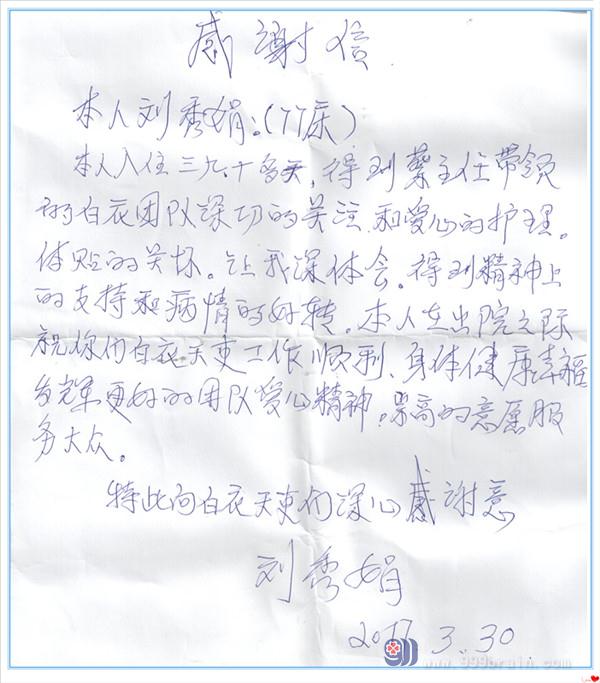 感谢信
本人刘秀娟：(77床)
本人入住三九十多天，得到蔡主任带领
的白衣团队深切的关注和爱心的护理。
体贴的关怀。让我深体会。得到精神上
的支持和病情的好转。本人在出院之际
祝你们白衣天吏工作顺利、身体健康幸福
发挥更好的团队爱心精神。崇高的意愿服
务大众。
特此向白衣天吏们深心感谢意
刘秀娟
2017.3.30
www.999brain.com